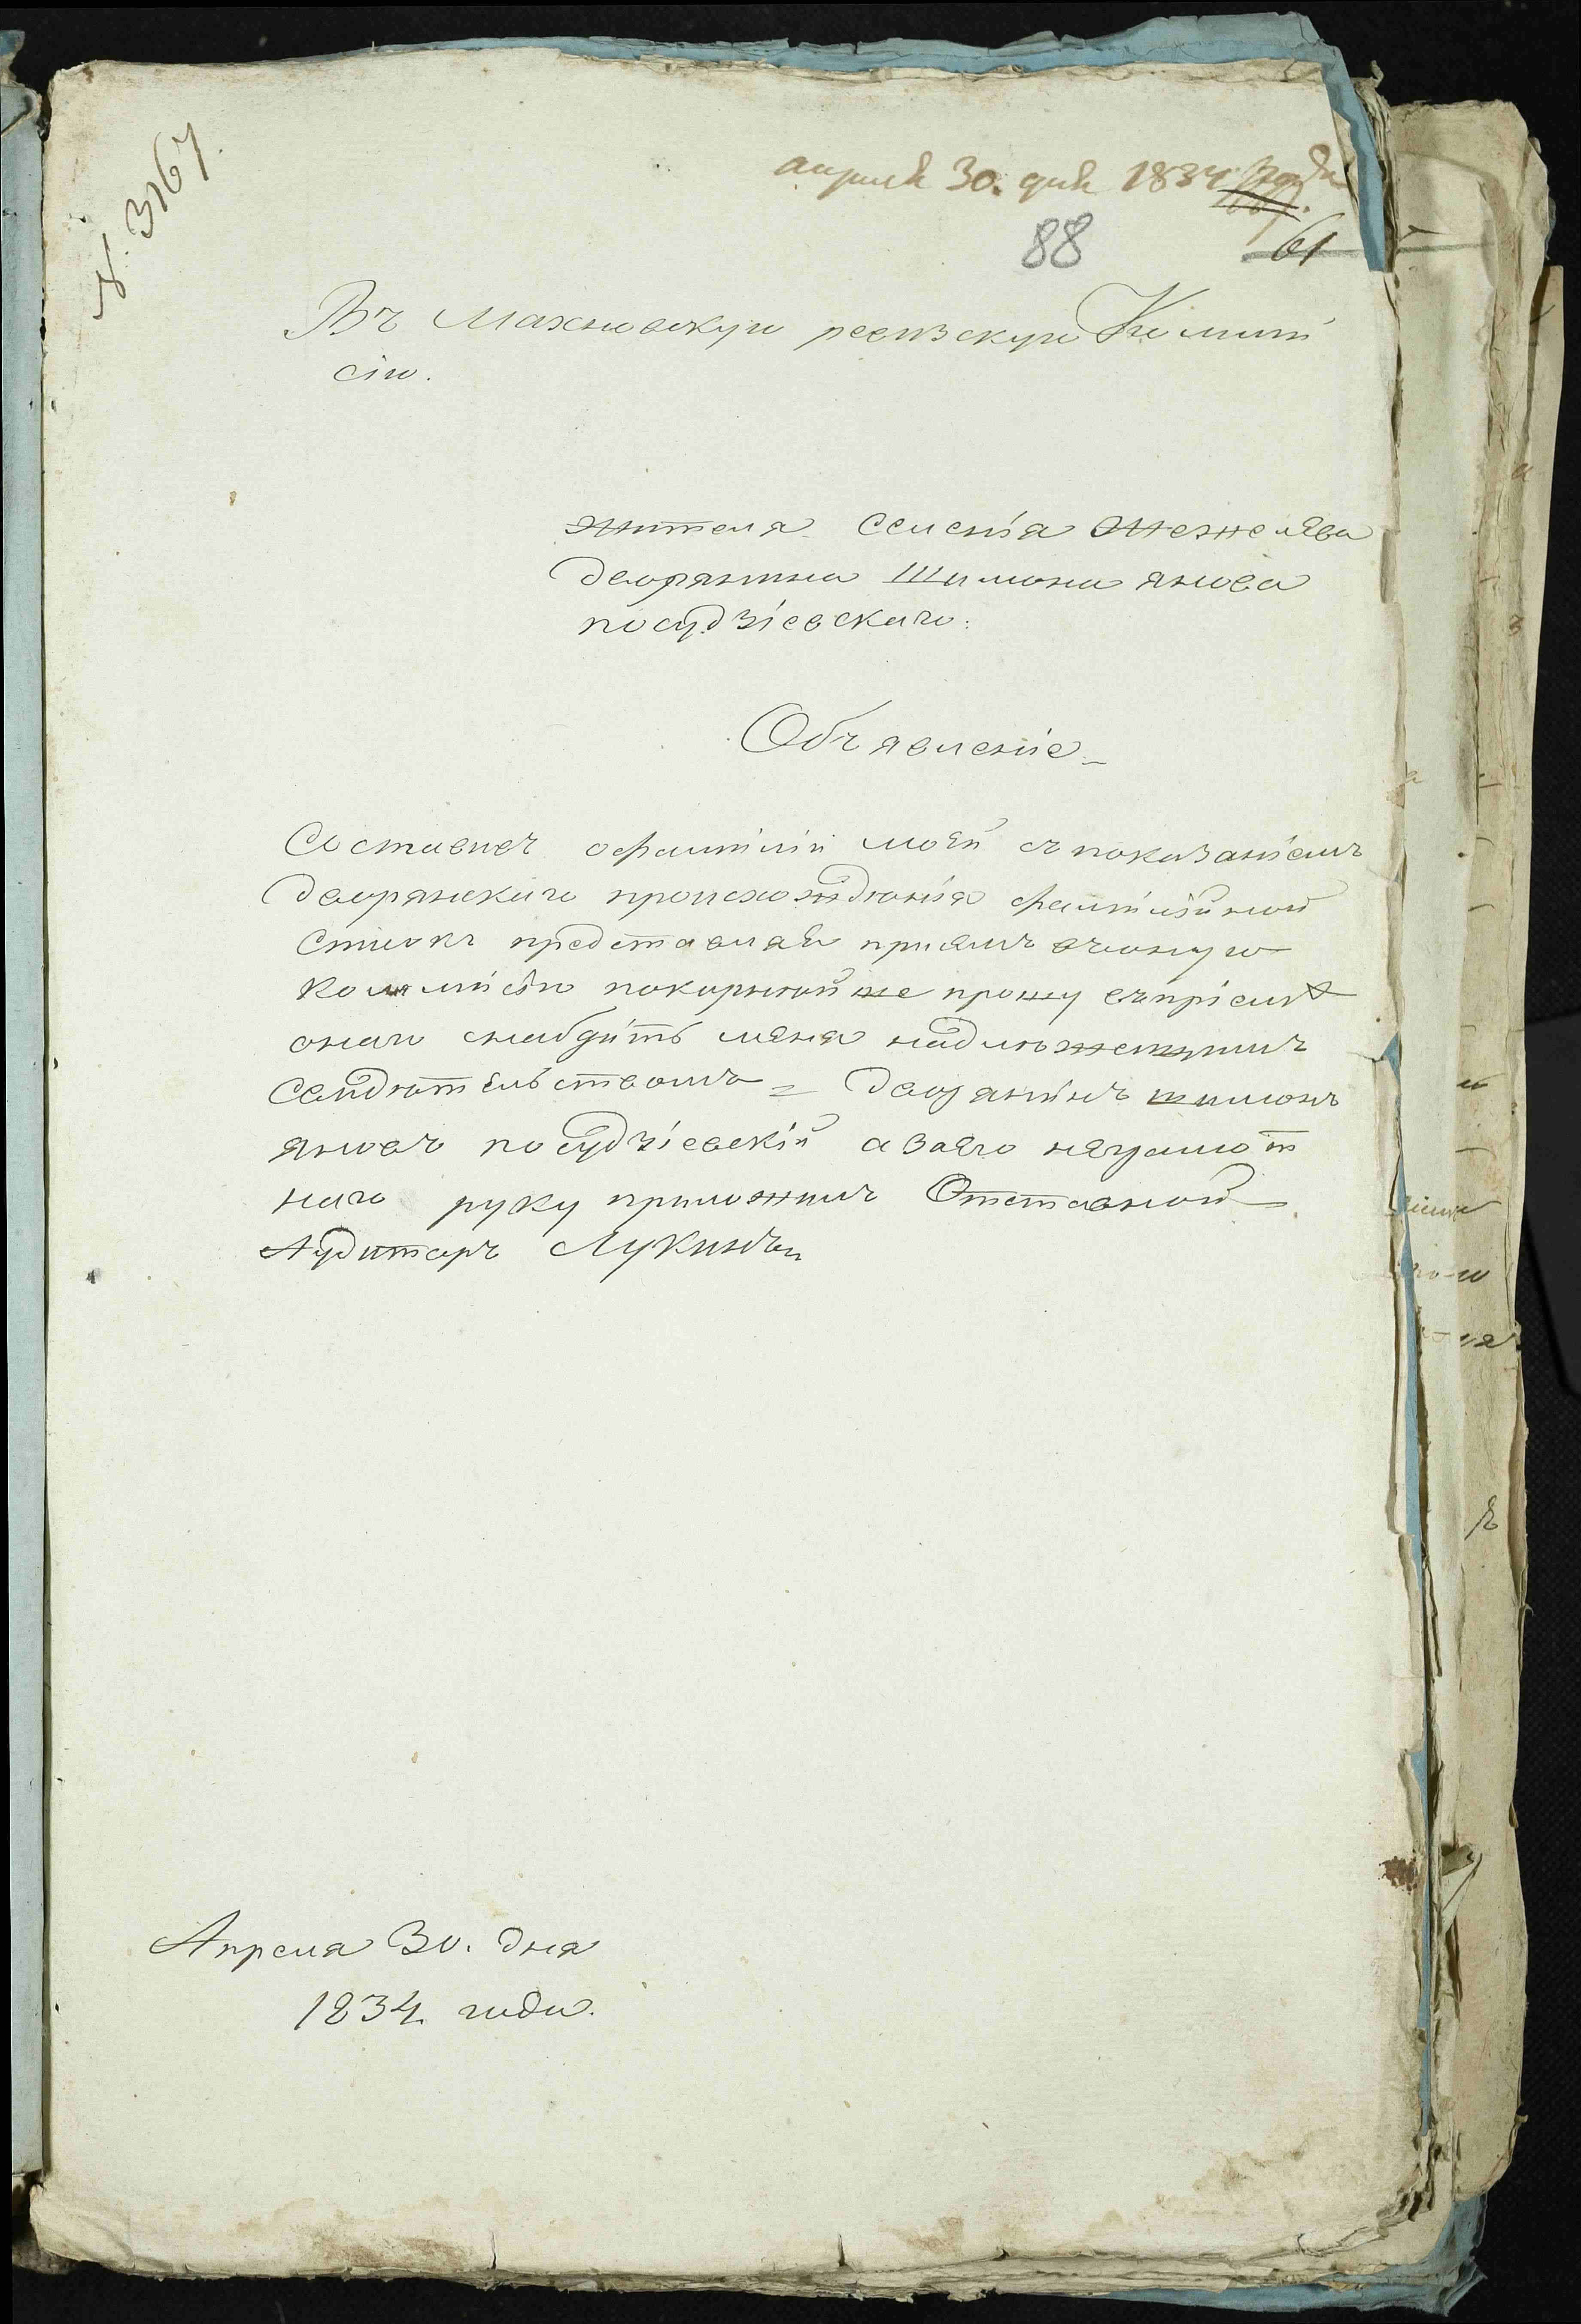 №. 3167.
апреля 30. дня 1834 года
88
61
Въ Махновскую ревизскую Комми
сію.
жителя селенія Жежелева
дворянина Шимона янова
посудзіевскаго:
Объявленіе
Составивъ офамиліи моей съ показаніемъ
дворянскаго происхождѣнія фамилійной
списокъ представляя приэмъ въоную
коммисію покорнѣйше прошу въпріемѣ
онаго снабдить мэня надлѣжащимъ
свидѣтельствомъ = дворянинъ шимонъ
яновъ посудзіевскій азаэго нэграмот
наго руку приложилъ Отставной
Аудиторъ Лукинъ
Апреля 30. дня
1834. года.